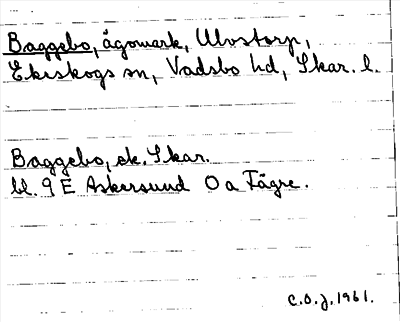 Baggebo, ägomark, Ulvstorp,
Ekeskogs sn, Vadsbo hd, Skar. l.
Baggebo, ek. Skar.
bl. 9 E Askersund 0 a Fägre.
C.O.J. 1961.